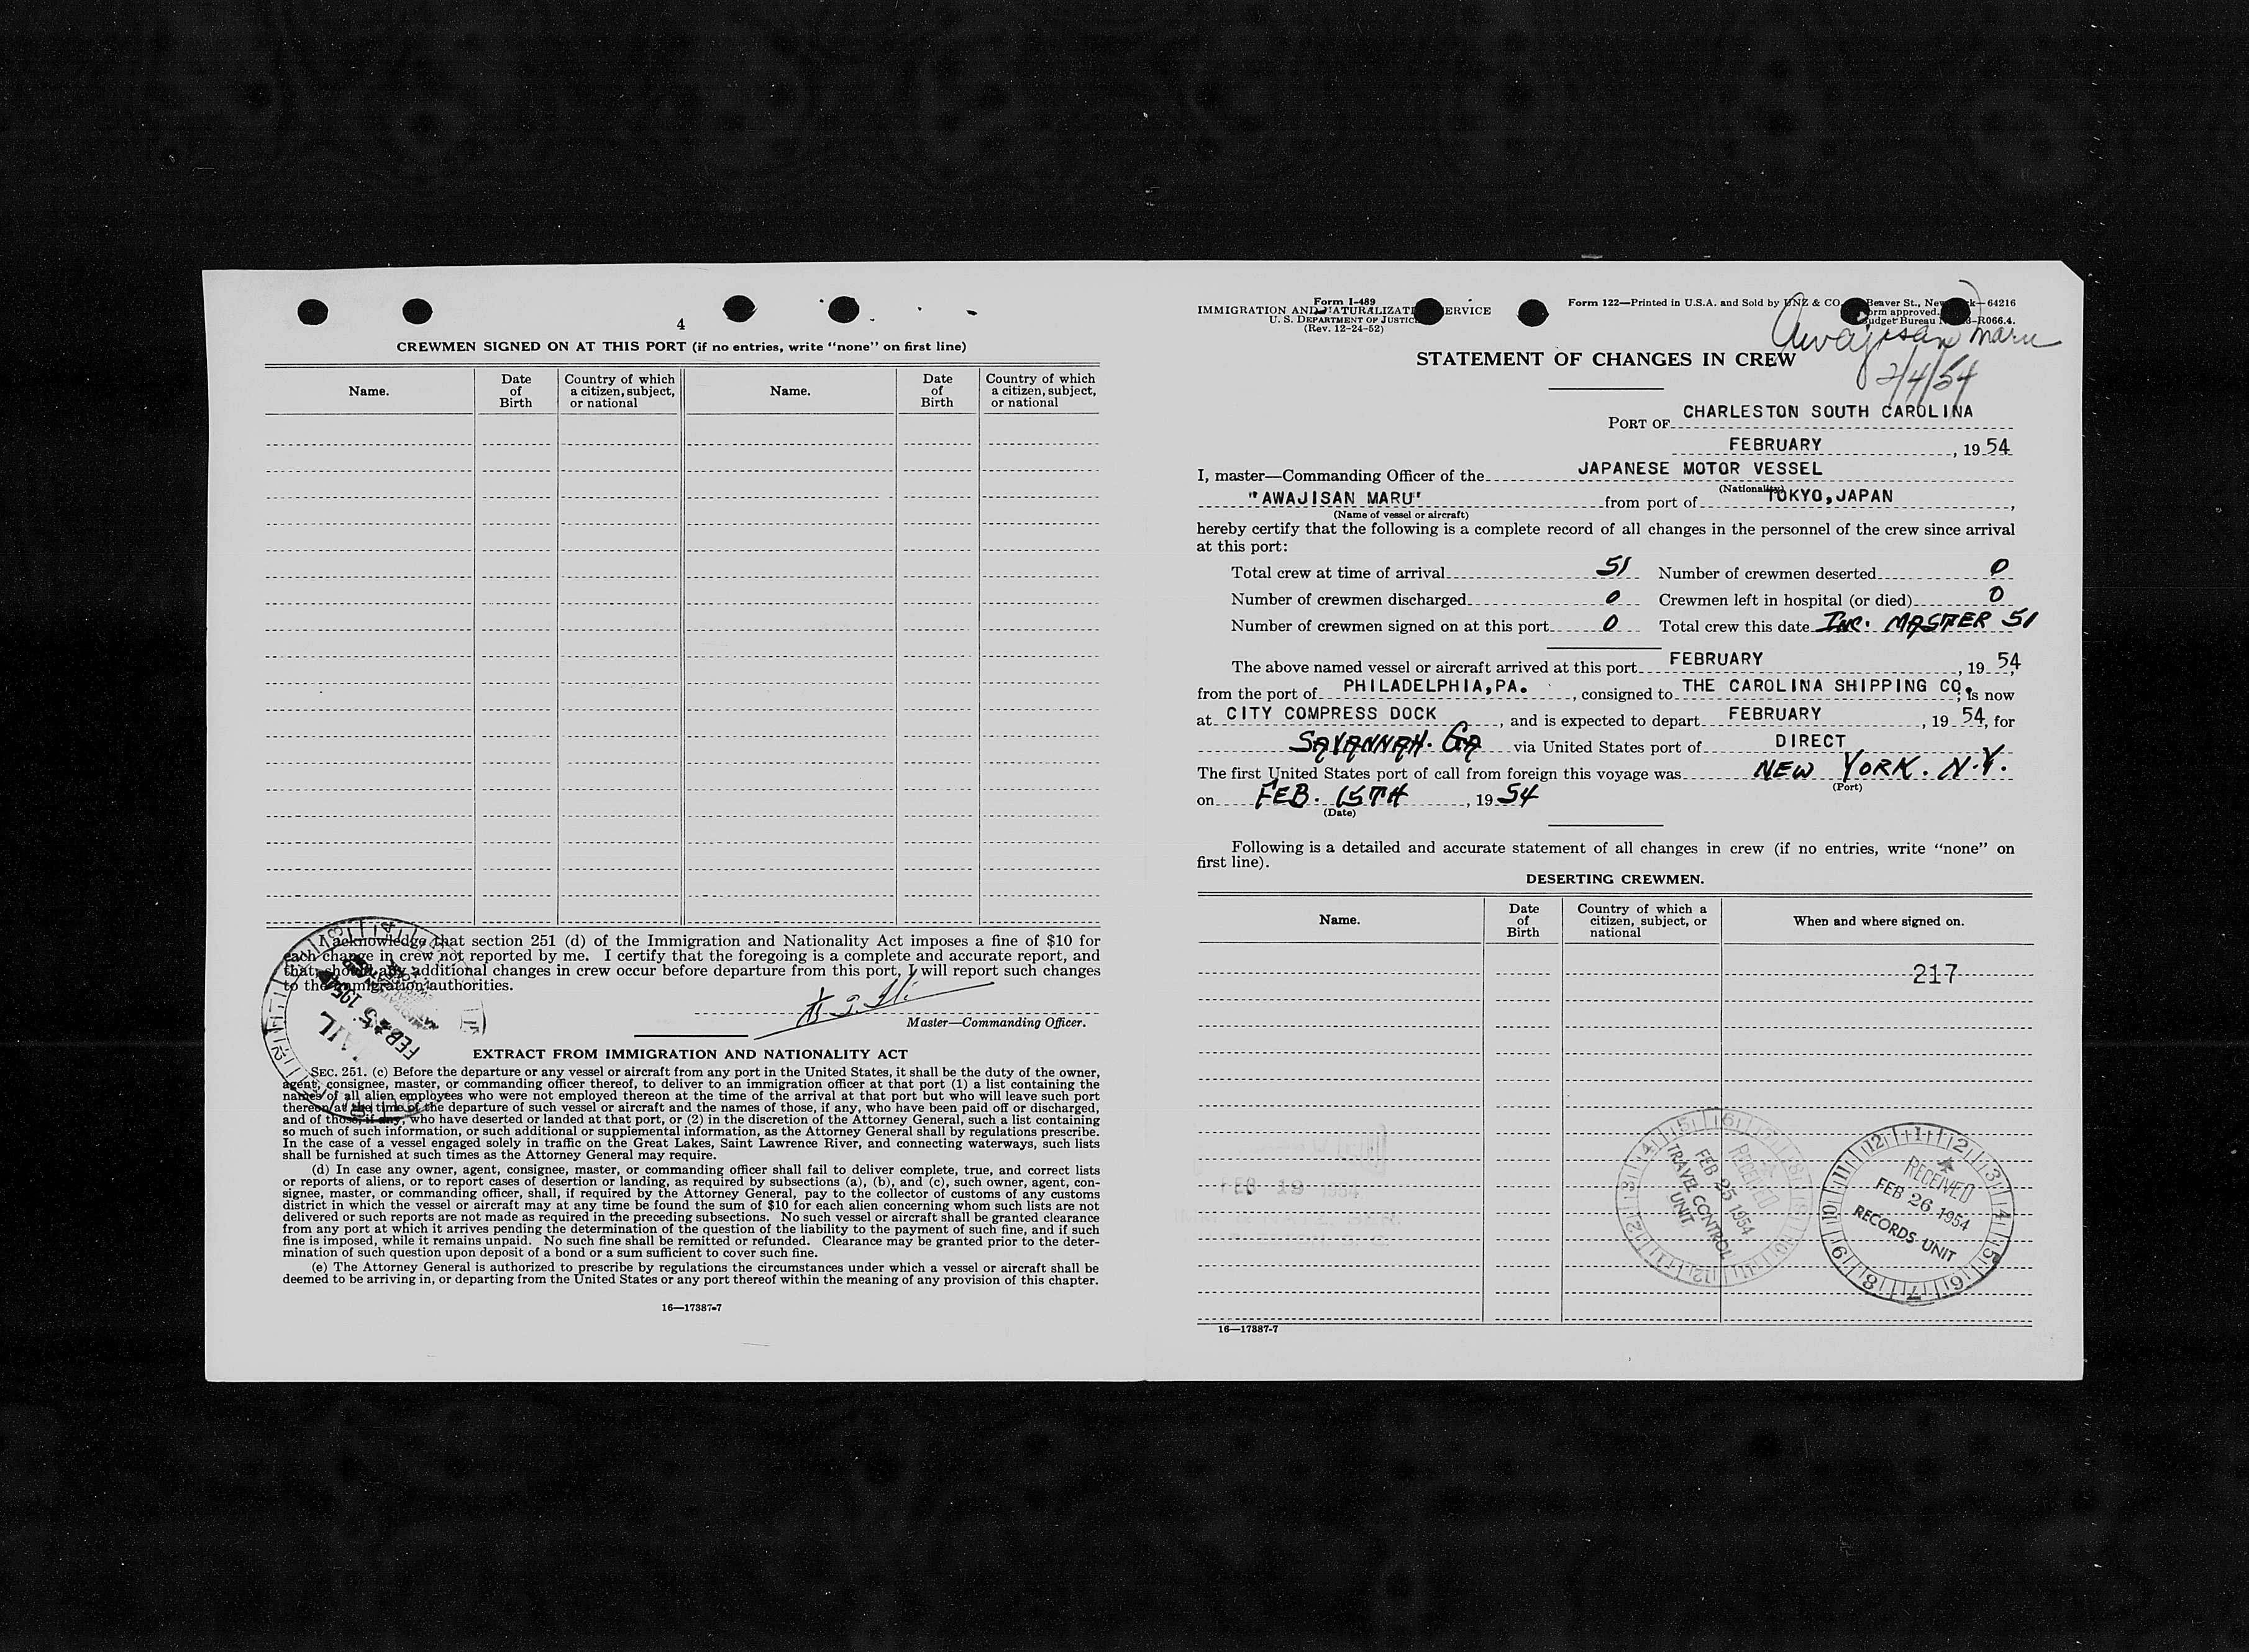 4
CREWMEN SIGNED ON AT THIS PORT (if no entries, write “none” on first line)
Name. Date of Birth Country of which a citizen, subject, or national Name. Date of Birth Country of which a citizen, subject, or national
I acknowledge that section 251 (d) of the Immigration and Nationality Act imposes a fine of $10 for
each change in crew not reported by me. I certify that the foregoing is a complete and accurate report, and
that, should any additional changes in crew occur before departure from this port, I will report such changes
to the immigration authorities.
FEB 25 1954
Master—Commanding Officer.
EXTRACT FROM IMMIGRATION AND NATIONALITY ACT
SEC. 251. (c) Before the departure or any vessel or aircraft from any port in the United States, it shall be the duty of the owner,
agent, consignee, master, or commanding officer thereof, to deliver to an immigration officer at that port (1) a list containing the
names of all alien employees who were not employed thereon at the time of the arrival at that port but who will leave such port
thereon at the time of the departure of such vessel or aircraft and the names of those, if any, who have been paid off or discharged,
and of those, if any, who have deserted or landed at that port, or (2) in the discretion of the Attorney General, such a list containing
so much of such information, or such additional or supplemental information, as the Attorney General shall by regulations prescribe.
In the case of a vessel engaged solely in traffic on the Great Lakes, Saint Lawrence River, and connecting waterways, such lists
shall be furnished at such times as the Attorney General may require.
(d) In case any owner, agent, consignee, master, or commanding officer shall fail to deliver complete, true, and correct lists
or reports of aliens, or to report cases of desertion or landing, as required by subsections (a), (b), and (c), such owner, agent, con-
signee, master, or commanding officer, shall, if required by the Attorney General, pay to the collector of customs of any customs
district in which the vessel or aircraft may at any time be found the sum of $10 for each alien concerning whom such lists are not
delivered or such reports are not made as required in the preceding subsections. No such vessel or aircraft shall be granted clearance
from any port at which it arrives pending the determination of the question of the liability to the payment of such fine, and if such
fine is imposed, while it remains unpaid. No such fine shall be remitted or refunded. Clearance may be granted prior to the deter-
mination of such question upon deposit of a bond or a sum sufficient to cover such fine.
(e) The Attorney General is authorized to prescribe by regulations the circumstances under which a vessel or aircraft shall be
deemed to be arriving in, or departing from the United States or any port thereof within the meaning of any provision of this chapter.
16—17387-7
Form I-489
IMMIGRATION AND NATURALIZATION SERVICE
U. S. DEPARTMENT OF JUSTICE
(Rev. 12-24-52)
Form 122—Printed in U.S.A. and Sold by UNZ & CO. Beaver St., New York—64216
Form approved.
Budget Bureau -R066.4.
Awajisan Maru
2/4/54
STATEMENT OF CHANGES IN CREW
PORT OF CHARLESTON SOUTH CAROLINA
FEBRUARY , 19 54
I, master—Commanding Officer of the JAPANESE MOTOR VESSEL
(Nationality)
"AWAJISAN MARU" from port of TOKYO, JAPAN ,
(Name of vessel or aircraft)
hereby certify that the following is a complete record of all changes in the personnel of the crew since arrival
at this port:
Total crew at time of arrival 51 Number of crewmen deserted 0
Number of crewmen discharged 0 Crewmen left in hospital (or died) 0
Number of crewmen signed on at this port 0 Total crew this date INC. MASTER 51
The above named vessel or aircraft arrived at this port FEBRUARY , 19 54,
from the port of PHILADELPHIA, PA. , consigned to THE CAROLINA SHIPPING CO. ; is now
at CITY COMPRESS DOCK , and is expected to depart FEBRUARY , 19 54, for
SAVANNAH. GA via United States port of DIRECT
The first United States port of call from foreign this voyage was NEW YORK. N.Y.
(Port)
on FEB. 15TH , 19 54
(Date)
Following is a detailed and accurate statement of all changes in crew (if no entries, write “none” on
first line).
DESERTING CREWMEN.
Name. Date of Birth Country of which a citizen, subject, or national When and where signed on.
217
FEB 19 1954
RECEIVED
FEB 25 1954
TRAVEL CONTROL
UNIT
RECEIVED
FEB 26 1954
RECORDS UNIT
16—17387-7